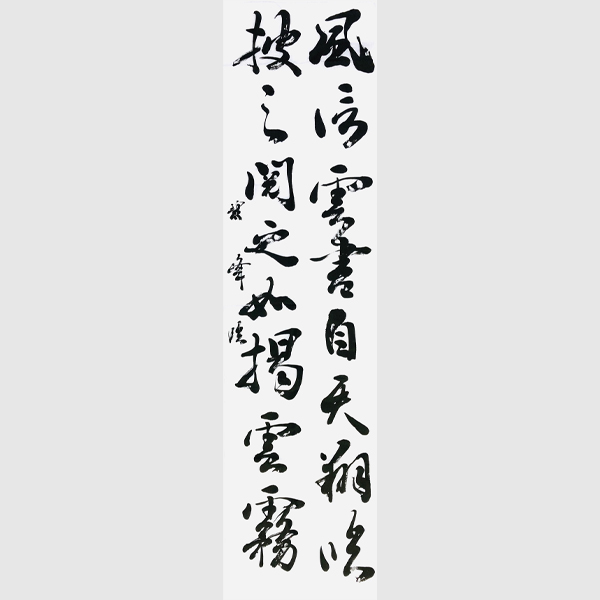 風信雲書自天翔臨
披之閲之如揭雲霧
峰臨